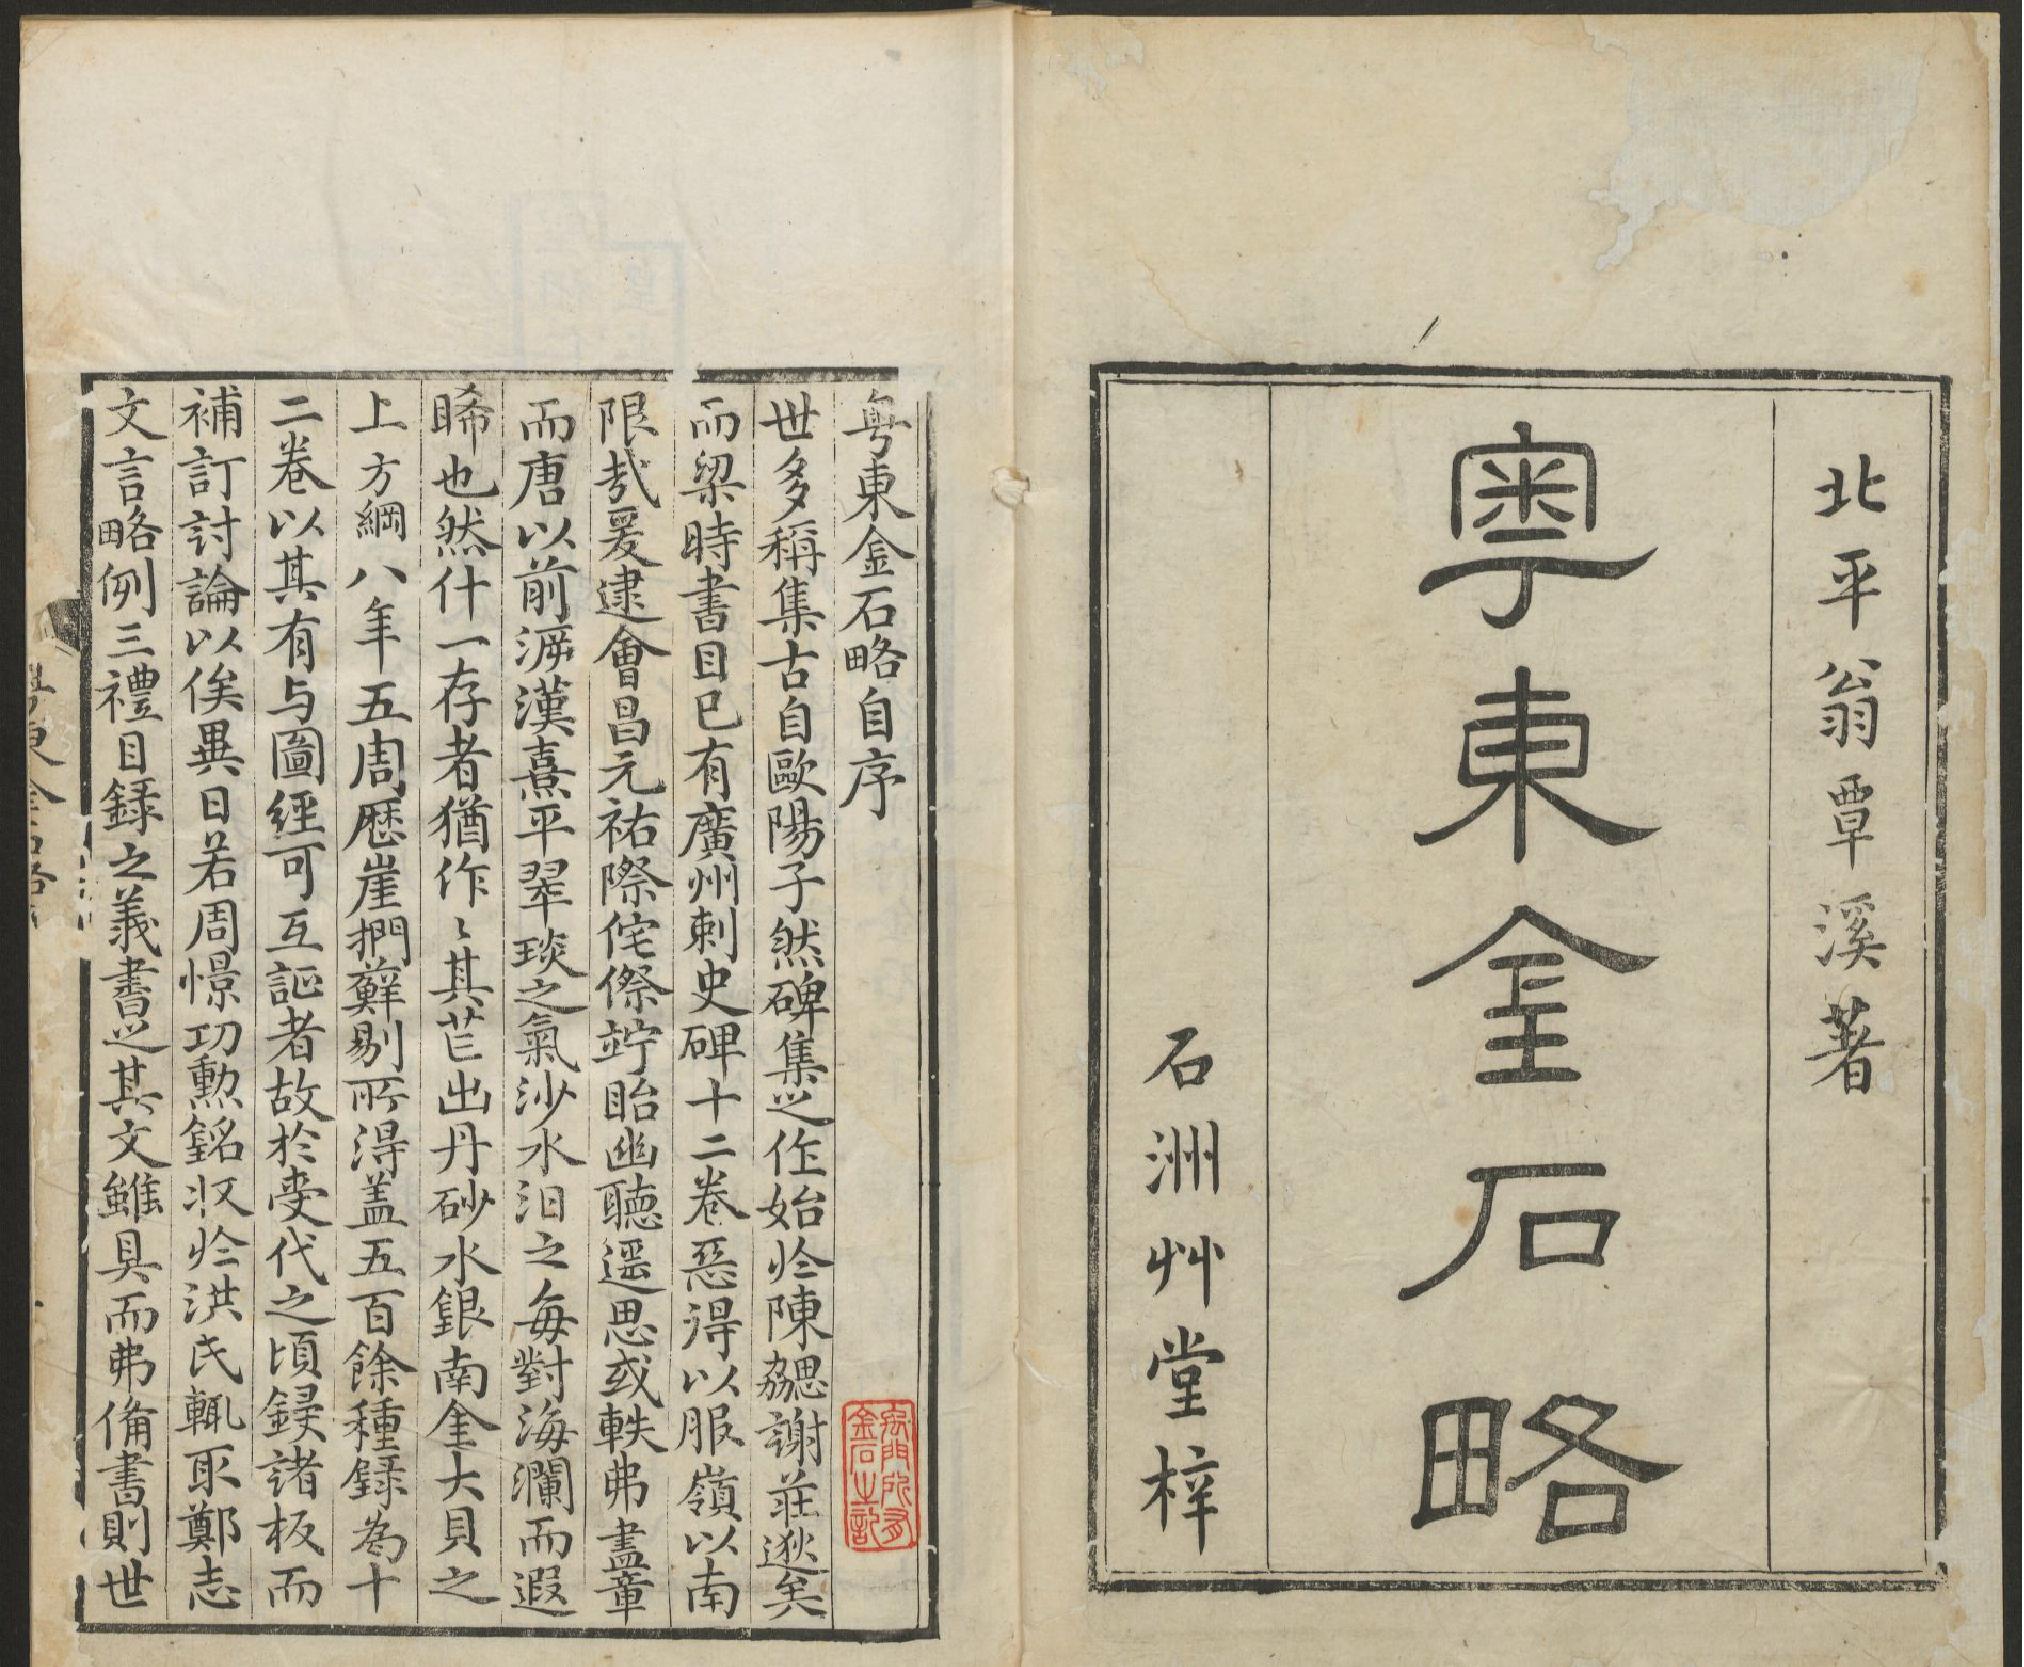 北平翁覃溪著
粵東金石略
石洲艸堂梓
粤東金石略自序
世多稱集古自歐陽子然碑集之作始於陳勰謝莊逖矣
而梁時書目已有廣州刺史碑十二卷惡得以服嶺以南
限哉爰逮會昌元祐際侘傺竚眙幽聽遥思或軼弗盡章
而唐以前泝漢熹平翠琰之氣沙水汨之每對海瀾而遐
睎也然什一存者猶作〻其芒出丹砂水銀南金大貝之
上方綱八年五周歷崖捫蘚剔所得蓋五百餘種録為十
二卷以其有与圖經可互証者故於受代之頃鋟諸板而
補訂討論以俟異日若周憬功勲銘収於洪氏輒取鄭志
文言略例三禮目録之義書之其文雖具而弗備書則世
粤東金石略